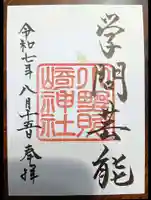 学問芸能
小野照
崎神社
令和七年八月十五日奉拝